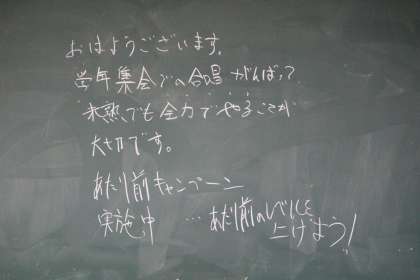 おはようございます。
学年集会での合唱がんばって?
未熟でも全力でやることが
大切です。
あたり前キャンペーン
実施中 … あたり前のレベルを
上げよう!